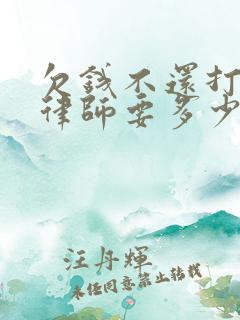 欠錢不還打
律師要多少
汪丹輝
未经同意禁止转载